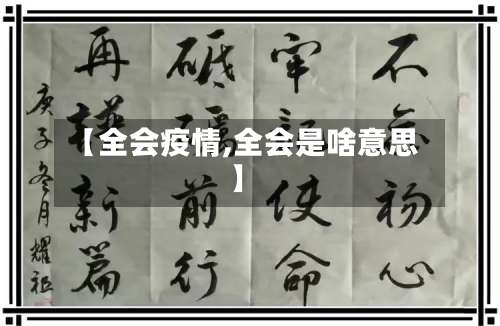 【全会疫情,全会是啥意思
】
不忘初心
牢记使命
砥砺前行
再谱新篇
庚子冬月耀祖